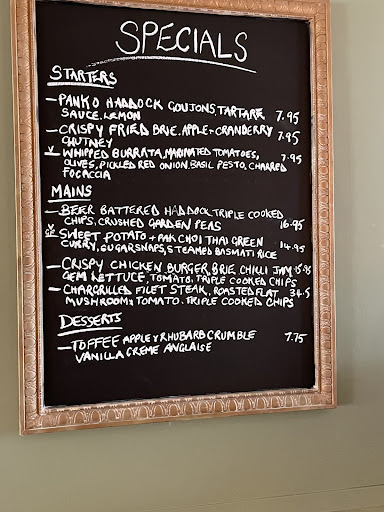 SPECIALS
STARTERS
- PANKO HADDOCK GOUJONS, TARTARE 7.95
SAUCE. LEMON
- CRISPY FRIED BRIE, APPLE + CRANBERRY 7.95
CHUTNEY
V WHIPPED BURRATA, MARINATED TOMATOES, 7.95
OLIVES, PICKLED RED ONION. BASIL PESTO, CHARRED
FOCACCIA
MAINS
- BEER BATTERED HADDOCK, TRIPLE COOKED
CHIPS, CRUSHED GARDEN PEAS 16.95
SWEET POTATO + PAK CHOI THAI GREEN
CURRY, SUGARSNAPS, STEAMED BASMATI RICE 14.95
- CRISPY CHICKEN BURGER, BRIE, CHILLI JAM 15.95
GEM LETTUCE, TOMATO, TRIPLE COOKED CHIPS
- CHARGRILLED FILET STEAK, ROASTED FLAT 34.5
MUSHROOM, TOMATO. TRIPLE COOKED CHIPS
DESSERTS
- TOFFEE APPLE & RHUBARB CRUMBLE 7.75
VANILLA CREME ANGLAISE